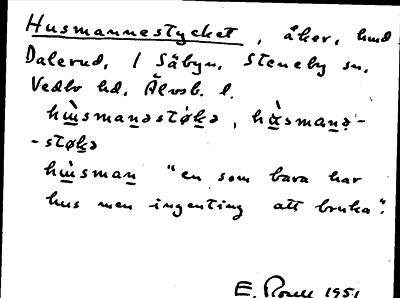 Husmannestycket, åker, hmd
Dalerud, 1 Säbyn, Steneby sn,
Vedbo hd, Älvsb. l.
hùsmanəstøkə, hùsmanə-
-støkə
hùsman "en som bara har
hus men ingenting att bruka".
E. 1951